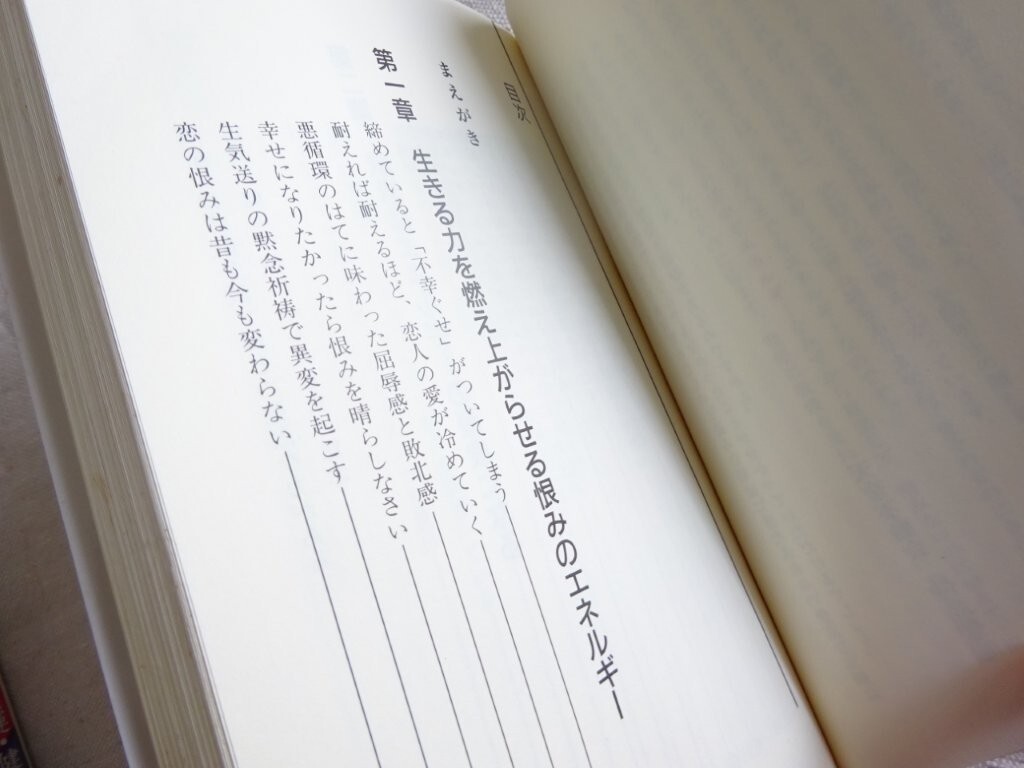 目次
まえがき
第一章 生きる力を燃え上がらせる恨みのエネルギー
締めていると「不幸ぐせ」がついてしまう
耐えれば耐えるほど、恋人の愛が冷めていく
悪循環のはてに味わった屈辱感と敗北感
幸せになりたかったら恨みを晴らしなさい
生気送りの黙念祈祷で異変を起こす
恋の恨みは昔も今も変わらない